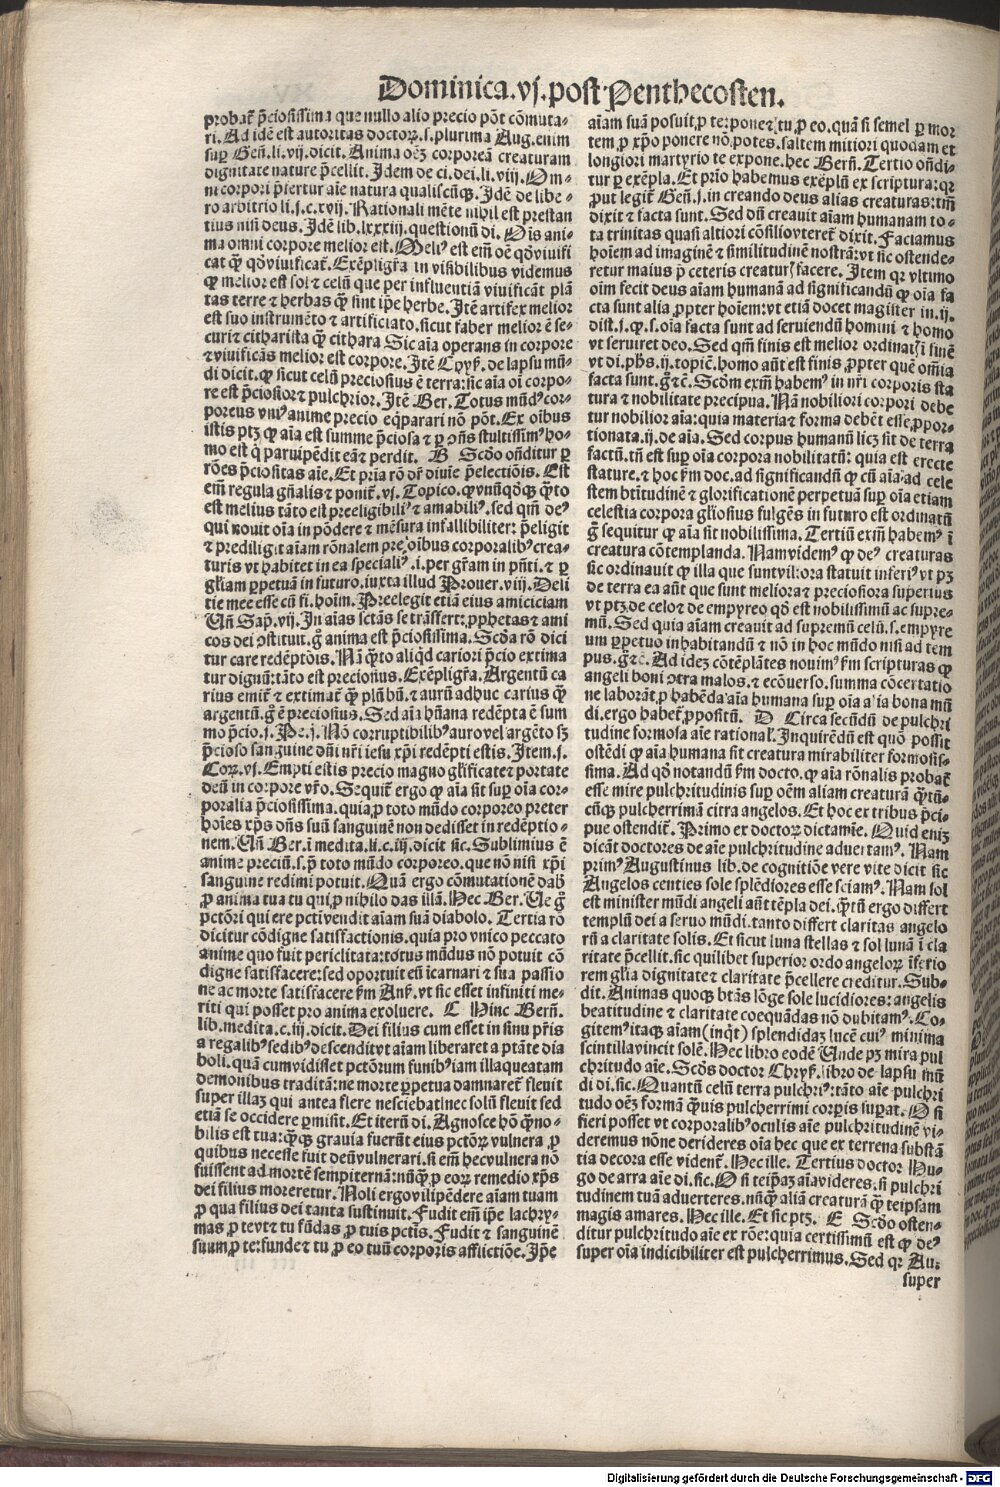 Dominica.vj.post Penthecosten.
probat᷑ p̄ciosissima que nullo alio precio põt cõmuta-
ri. Ad idẽ est autoritas doctoꝝ.s.plurima Aug.enim
suꝑ Geñ.li.vij.dicit. Anima oẽꝫ corporeã creaturam
dignitate nature p̄cellit. Idem de ci.dei.li.viij. Om-
ni corpori p̄fertur aĩe natura qualiscũꝗ. Idẽ de libe-
ro arbitrio li.j.c.xvij. Rationali mẽte nihil est prestan
tius nisi deus. Idẽ lib.lxxxiij.questionũ di. Oĩs ani-
ma omni corpore melior est. Meliꝰ est em̃ oẽ qđ viuifi
cat ꝙ̃ qđ viuificat᷑. Exẽpligr̃a in visibilibus videmus
ꝙ melior est sol ⁊ celũ que per influentiã viuificãt plã
tas terre ⁊ herbas ꝙ̃ sint ip̃e herbe. Itẽ artifex melior
est suo instrumẽto ⁊ artificiato. sicut faber melior ẽ se-
curi ⁊ citharista ꝙ̃ cithara Sic aĩa operans in corpore
⁊ viuificãs melior est corpore. Itẽ Cryſ. de lapsu mũ-
di dicit. ꝙ sicut celũ preciosius ẽ terra: sic aĩa oĩ corpo-
re est p̄ciosior ⁊ pulchrior. Itẽ Ber. Totus mũdꝰ cor-
poreus vniꝰ anime precio eq̃parari nõ põt. Ex oĩbus
istis ptꝫ ꝙ aĩa est summe p̄ciosa ⁊ ꝑ ↄ̃ns stultissimꝰ ho-
mo est q̇ paruipẽdit eã ⁊ perdit. B Scđo oñditur ꝑ
rões p̄ciositas aĩe. Et pria rõ dr̃ diuĩe p̄electiõis. Est
em̃ regula gñalis ⁊ ponit᷑.vj. Topico. ꝙ vnũqđꝗ ꝙ̃to
est melius tãto est preeligibiliꝰ ⁊ amabiliꝰ. sed qm̃ deꝰ
qui nouit oĩa in põdere ⁊ mẽsura infallibiliter: p̄eligit
⁊ prediligit aĩam rõnalem pre oĩbus corporalibꝰ crea-
turis vt habitet in ea specialiꝰ.i.per gr̃am in pñti.⁊ ꝑ
gl̃iam ꝑpetuã in futuro. iuxta illud Prouer.viij. Deli
tie mee esse cũ fi.hoĩm. Preelegit etiã eius amiciciam
Uñ Sap̃.vij. In aĩas sctãs se trãssert: ꝓphetas ⁊ ami
cos dei ↄstituit. gͦ anima est p̄ciosissima. Scđa rõ dici
tur care redẽptõis. Nã ꝙ̃to aliqđ cariori p̄cio extima
tur dignũ: tãto est preciosius. Exẽpligr̃a. Argentũ ca
rius emit᷑ ⁊ extimat᷑ ꝙ̃ plũbũ.⁊ aurũ adhuc carius ꝙ̃
argentũ. gͦ ẽ preciosius. Sed aĩa hũana redẽpta ẽ sum
mo p̄cio.j.Pe.j. Nõ corruptibilibꝰ auro vel argẽto sꝫ
p̄cioso sanguine dñi nr̃i iesu xp̃i redẽpti estis. Item.j.
Coꝝ.vj. Empti estis precio magno gl̃ificate ⁊ portate
deũ in corpore vr̃o. Sequit᷑ ergo ꝙ aĩa sit suꝑ oĩa cor-
poralia p̄ciosissima. quia ꝓ toto mũdo corporeo preter
hoĩes xp̃s dñs suũ sanguinẽ non dedisset in redẽptio-
nem. Uñ Ber.ĩ medita.li.c.iij.dicit sic. Sublimius ẽ
anime preciũ.s.p̄ toto mũdo corporeo. que nõ nisi xp̃i
sanguine redimi potuit. Quã ergo cõmutationẽ dab̃
ꝓ anima tua tu qui ꝓ nihilo das illã. Hec Ber. Ue gͦ
pctõri qui ere pcti vendit aĩam suã diabolo. Tertia rõ
dicitur cõdigne satisfactionis. quia pro vnico peccato
anime quo fuit periclitata: totus mũdus nõ potuit cõ
digne satisfacere: sed oportuit eũ ĩcarnari ⁊ sua passio
ne ac morte satisfacere ẜm Anẜ. vt sic esset infiniti me-
riti qui posset pro anima exoluere. C Hinc Berñ.
lib.medita.c.iij.dicit. Dei filius cum esset in sinu pr̃is
a regalibꝰ sedibꝰ descendit vt aĩam liberaret a ptãte dia
boli. quã cum vidisset pctõrum funibꝰ iam illaqueatam
demonibus traditã: ne morte ꝑpetua damnaret᷑ fleuit
super illaꝫ qui antea flere nesciebat: nec solũ fleuit sed
etiã se occidere ꝑmisit. Et iterũ di. Agnosce hõ ꝙ̃ no-
bilis est tua: ꝙ̃ꝗ grauia fuerũt eius pctõꝝ vulnera ꝓ
quibus necesse fuit deũ vulnerari. si em̃ hec vulnera nõ
fuissent ad mortẽ sempiternã: nũꝙ̃ ꝓ eoꝝ remedio xp̃s
dei filius moreretur. Noli ergo vilipẽdere aĩam tuam
ꝓ qua filius dei tanta sustinuit. Fudit em̃ ip̃e lachry-
mas ꝓ te vt ⁊ tu fũdas ꝓ tuis pctĩs. Fudit ⁊ sanguinẽ
suum ꝓ te: funde ⁊ tu ꝓ eo tuũ corporis afflictiõe. Ip̃e
aĩam suã posuit ꝓ te: pone ⁊ tu ꝓ eo. quã si semel ꝑ mor
tem ꝓ xp̃o ponere nõ potes. saltem mitiori quodam et
longiori martyrio te expone. hec Berñ. Tertio oñdi-
tur ꝑ exẽpla. Et prĩo habemus exẽplũ ex scriptura: qꝛ
ꝓut legit᷑ Geñ.j.in creando deus alias creaturas: tm̃
dixit ⁊ facta sunt. Sed dũ creauit aĩam humanam to-
ta trinitas quasi altiori cõsilio vteret᷑ dixit. Faciamus
hoĩem ad imaginẽ ⁊ similitudinẽ nostrã: vt sic ostende-
retur maius p̄ ceteris creaturꝭ facere. Item qꝛ vltimo
oĩm fecit deus aĩam humanã ad significandũ ꝙ oĩa fa
cta sunt alia ꝓpter hoĩem: vt etiã docet magister in.ij.
dist.j.ꝙ.s.oĩa facta sunt ad seruiendũ homini ⁊ homo
vt seruiret deo. Sed qm̃ finis est melior ordinatꝭ ĩ finẽ
vt di.pħs.ij.topiẽ. homo aũt est finis ꝓpter quẽ om̃ia
facta sunt. gͦ ⁊c̃. Scđm exm̃ habemꝰ in nr̃i corporis sta
tura ⁊ nobilitate precipua. Nã nobiliori corpori debe
tur nobilior aĩa: quia materia ⁊ forma debẽt esse ꝓpor-
tionata.ij.de aĩa. Sed corpus humanũ licꝫ sit de terra
factũ.tñ est suꝑ oĩa corpora nobilitatũ: quia est erecte
stature.⁊ hoc ẜm doc.ad significandũ ꝙ cũ aĩa ad cele
stem btĩtudinẽ ⁊ glorificationẽ perpetuã suꝑ oĩa etiam
celestia corpora gl̃iosius fulgẽs in futuro est ordinatũ
gͦ sequitur ꝙ aĩa sit nobilissima. Tertiũ exm̃ habemꝰ ĩ
creatura cõtemplanda. Nam videmꝰ ꝙ deꝰ creaturas
sic ordinauit ꝙ illa que sunt viliora statuit inferiꝰ vt pꝫ
de terra ea aũt que sunt meliora ⁊ preciosiora superius
vt ptꝫ.de celo ⁊ de empyreo qđ est nobilissimũ ac supre-
mũ. Sed quia aĩam creauit ad supremũ celũ.s.empyre
um ꝑpetuo inhabitandũ ⁊ nõ in hoc mũdo nisi ad tem
pus. gͦ ⁊c̃. Ad ideꝫ cõtẽplãtes nouimꝰ ẜm scripturas ꝙ
angeli boni ↄtra malos.⁊ ecõuerso. summa cõcertatio
ne laborãt ꝓ habẽda aĩa humana suꝑ oĩa alia bona mũ
di. ergo habet᷑ ꝓpositũ. D Circa secũdũ de pulchri
tudine formosa aĩe rationalꝭ. Inquirẽdũ est quõ possit
ostẽdi ꝙ aĩa humana sit creatura mirabiliter formosis-
sima. Ad qđ notandũ ẜm docto. ꝙ aĩa rõnalis probat᷑
esse mire pulchritudinis suꝑ oẽm aliam creaturã ꝙ̃tũ-
cũꝗ pulcherrimã citra angelos. Et hoc ex tribus p̄ci-
pue ostendit᷑. Primo ex doctoꝝ dictamĩe. Quid eniꝫ
dicãt doctores de aĩe pulchritudine aduertamꝰ. Nam
primꝰ Augustinus lib. de cognitiõe vere vite dicit sic
Angelos centies sole splẽdiores esse sciamꝰ. Nam sol
est minister mũdi angeli aũt tẽpla dei. ꝙ̃tũ ergo differt
templũ dei a seruo mũdi. tanto differt claritas angelo
rũ a claritate solis. Et sicut luna stellas ⁊ sol lunã ĩ cla
ritate p̄cellit. sic quilibet superior ordo angeloꝝ ĩferio
rem gl̃ia dignitate ⁊ claritate p̄cellere creditur. Sub-
dit. Animas quoꝗ btãs lõge sole lucidiores: angelis
beatitudine ⁊ claritate coequãdas nõ dubitamꝰ. Co-
gitemꝰ itaꝗ aĩam (inq̇t) splendidaꝫ lucẽ cuiꝰ minima
scintilla vincit solẽ. Hec libro eodẽ Unde pꝫ mira pul
chritudo aĩe. Scđs doctor Chryſ. libro de lapsu mũ
di di.sic. Quantũ celũ terra pulchriꝰ: tãto aĩe pulchri
tudo oẽꝫ formã ꝙ̃uis pulcherrimi corpĩs suꝑat. O si
fieri posset vt corporalibꝰ oculis aĩe pulchritudinẽ vi-
deremus nõne derideres oĩa hec que ex terrena substã
tia decora esse vident᷑. Hec ille. Tertius doctor Hu-
go de arra aĩe di.sic. O si teip̃aꝫ aĩa videres. si pulchri
tudinem tuã aduerteres. nũꝙ̃ aliã creaturã ꝙ̃ teipsam
magis amares. Hec ille. Et sic ptꝫ. E Scđo osten-
ditur pulchritudo aĩe ex rõe: quia certissimũ est ꝙ deꝰ
super oĩa indicibiliter est pulcherrimus. Sed qꝛ Au:
super
Digitalisierung gefördert durch die Deutsche Forschungsgemeinschaft - DFG